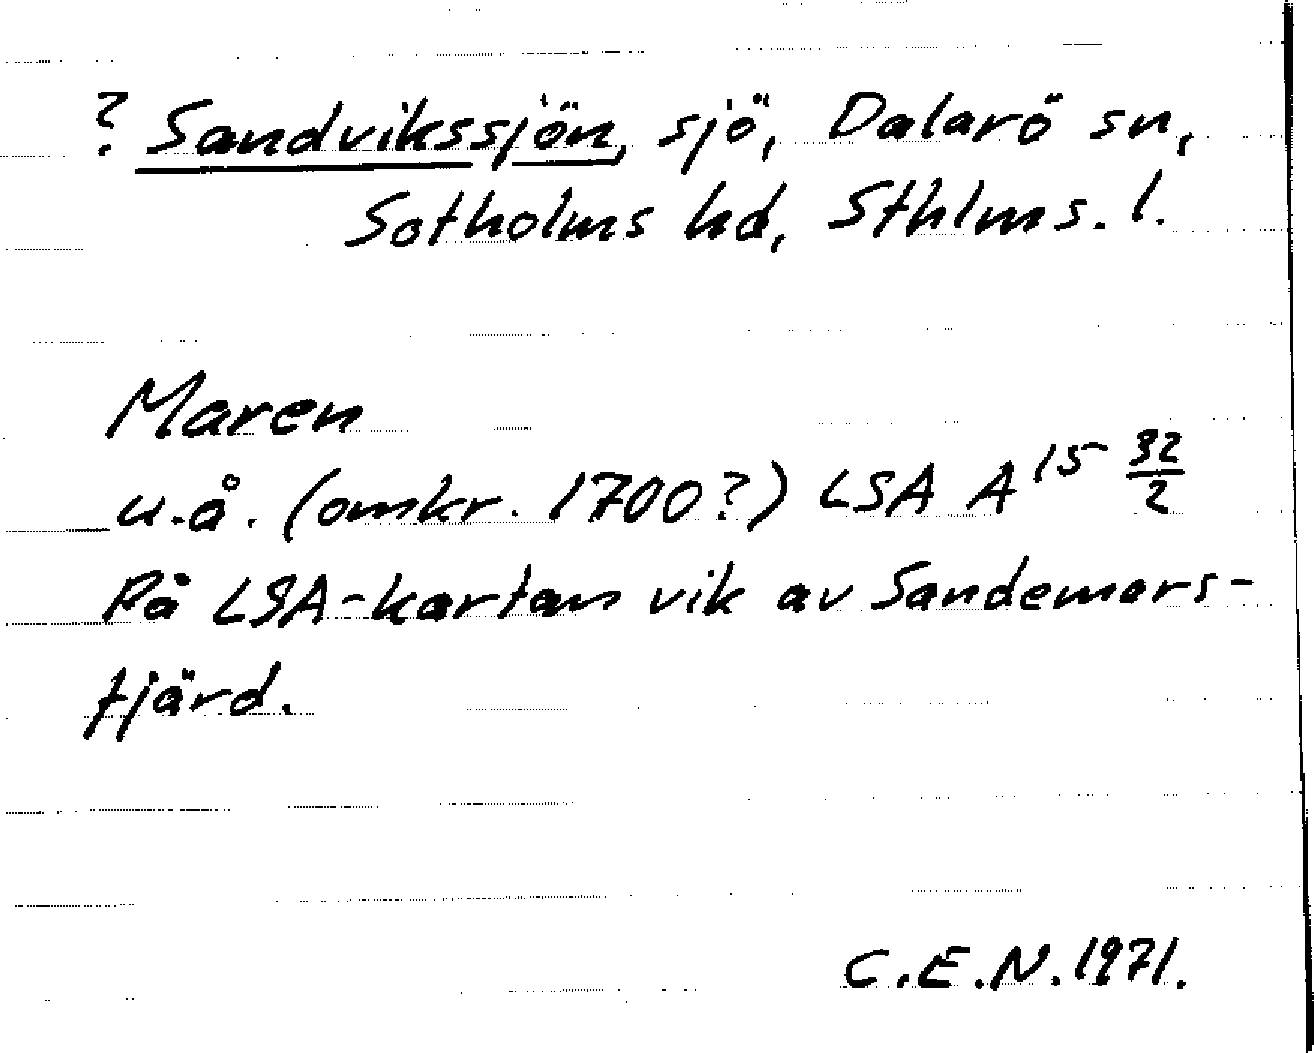 ? Sandvikssjön, sjö, Dalarö sn,
Sotholms hd, Sthlms. l.
Maren
u.å. (omkr. 1700?) LSA A 15 32/2
På LSA-kartan vik av Sandemars-
fjärd.
C.E.N. 1971.